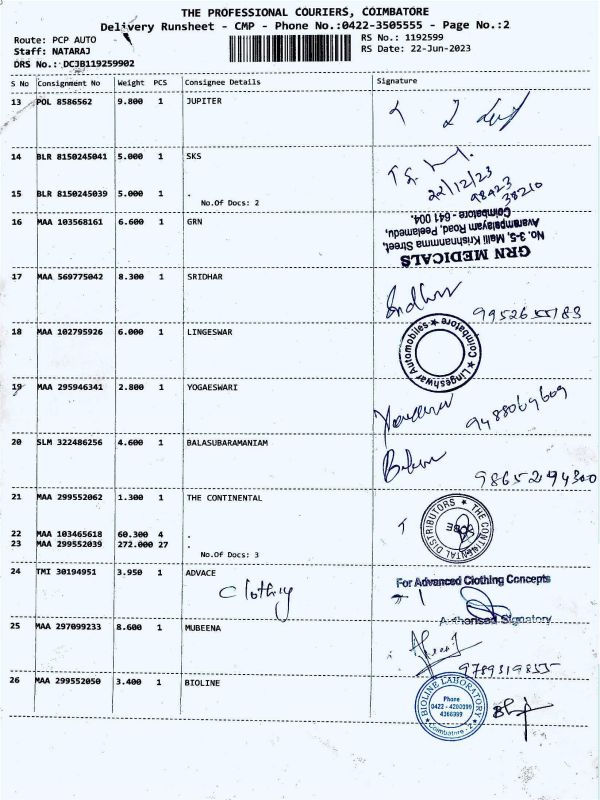 THE PROFESSIONAL COURIERS, COIMBATORE
Delivery Runsheet - CMP - Phone No.:0422-3505555 - Page No.:2
Route: PCP AUTO
Staff: NATARAJ
DRS No.: DCJB119259902
RS No.: 1192599
RS Date: 22-Jun-2023
S No Consignment No Weight PCS Consignee Details Signature
13 POL 8586562 9.800 1 JUPITER
14 BLR 8150245041 5.000 1 SKS
22/12/23
98423
38210
15 BLR 8150245039 5.000 1 .
No.Of Docs: 2
16 MAA 103568161 6.600 1 GRN
GRN MEDICALS
No. 3-5, Malli Krishnamma Street,
Avarampalayam Road, Peelamedu,
Coimbatore - 641 004.
17 MAA 569775042 8.300 1 SRIDHAR
Sridhar
9952655183
18 MAA 102795926 6.000 1 LINGESWAR
Lingeshwar Automobiles ★ Coimbatore ★
19 MAA 295946341 2.800 1 YOGAESWARI
9488069609
20 SLM 322486256 4.600 1 BALASUBARAMANIAM
9865294300
21 MAA 299552062 1.300 1 THE CONTINENTAL
★ THE CONTINENTAL DISTRIBUTORS
22 MAA 103465618 60.300 4 .
23 MAA 299552039 272.000 27 .
No.Of Docs: 3
24 TMI 30194951 3.950 1 ADVACE
Clothing
For Advanced Clothing Concepts
Authorised Signatory
25 MAA 297099233 8.600 1 MUBEENA
9789319855
26 MAA 299552050 3.400 1 BIOLINE
BIOLINE LABORATORY
Phone
0422 - 4200999
4366999
★ Coimbatore - 2 ★